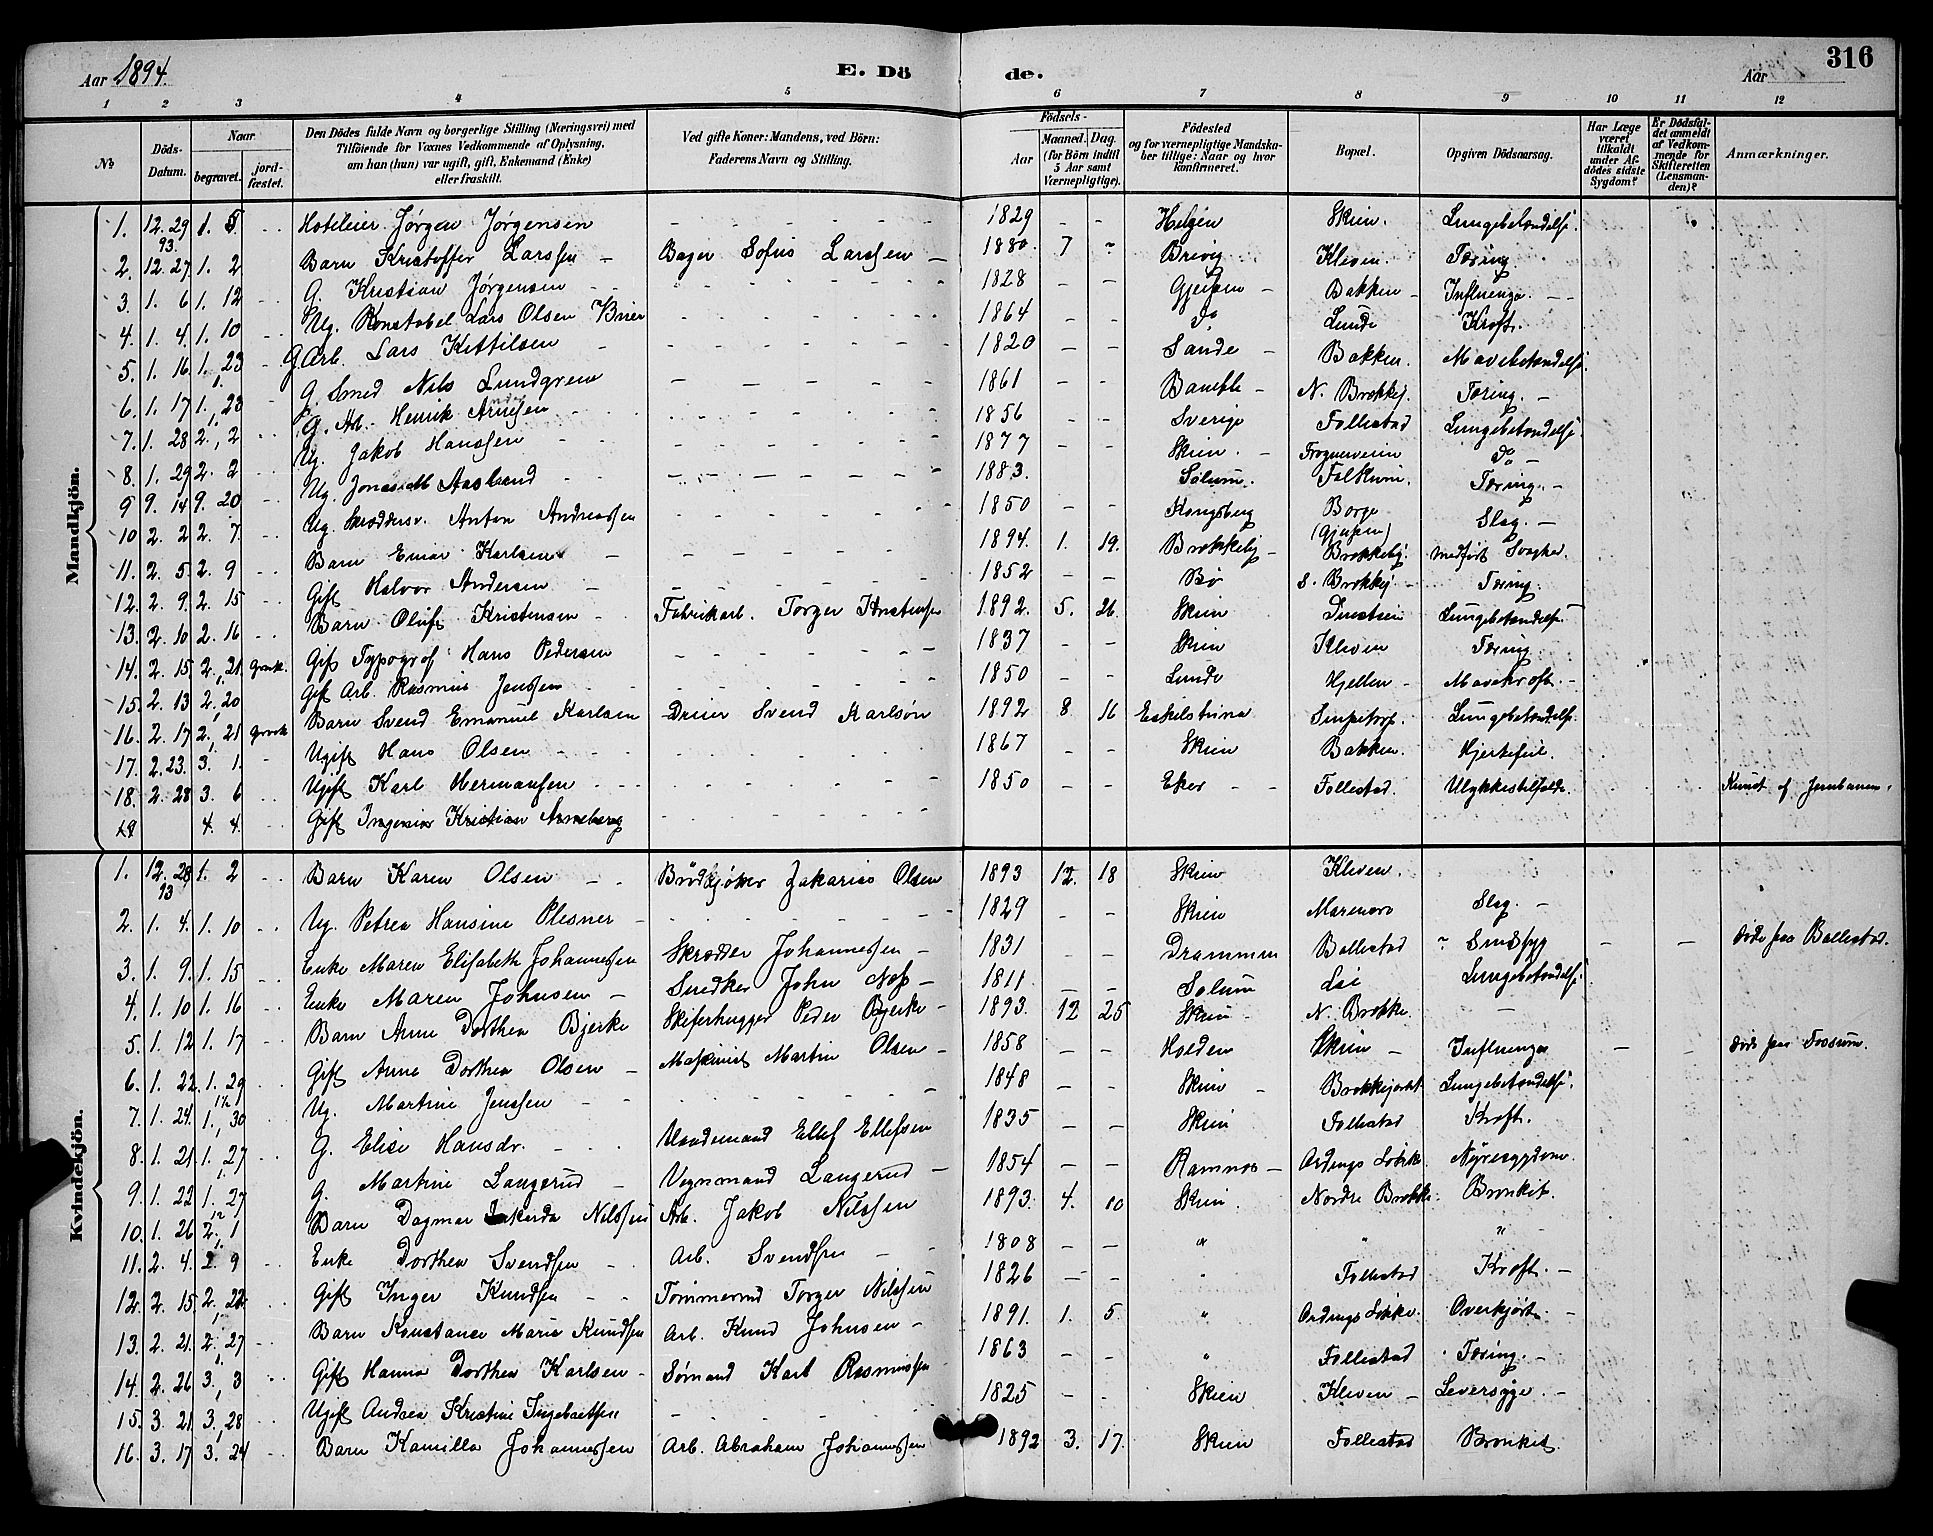 Aar 1894.
E. Dö de.
Aar
316
1 2 3 4 5 6 7 8 9 10 11 12
No
Döds-Datum.
Naar
begravet.
jordfæstet.
Den Dödes fulde Navn og borgerlige Stilling (Næringsvei) med Tilföiende for Voxnes Vedkommende af Oplysning, om han (hun) var ugift, gift, Enkemand (Enke) eller fraskilt.
Ved gifte Koner: Mandens, ved Börn: Faderens Navn og Stilling.
Födsels-
Aar
Maaned. Dag.
(for Börn indtil 5 Aar samt Værnepligtige).
Födested og for værnepligtige Mandskaber tillige: Naar og hvor konfirmeret.
Bopæl.
Opgiven Dödsaarsag.
Har Læge været tilkaldt under Afdödes sidste Sygdom?
Er Dödsfaldet anmeldt af Vedkommende for Skifteretten (Lensmanden)?
Anmærkninger.
Mandkjön.
1. 12. 29 93. 1. 5. Hoteleier Jørgen Jørgensen 1829 Helgen Skien. Lungebetændelse
2. 12. 27 1. 2 Barn Kristoffer Larssen Bager Sofus Larssen 1880. 7 Brevig Kleven. Tæring.
3. 1. 6 1. 12 G. Kristian Jørgensen 1828 Gjerpen Bakken Influenza.
4. 1. 4. 1. 10 Ug. Konstabel Lars Olsen 1864 do Lunde Kræft.
5. 1. 16 1. 23 G. Arb. Lars Kittilsen 1820 Sande Bakken. Mavebetændelse.
6. 1. 17 1. 23 G. Smed Nils Lundgren 1861 Bamble N. Brekkej. Tæring.
7. 1. 28 2. 2 G. Arb. Henrik Arnesen 1856 Sverige Follestad Lungebetændelse
8. 1. 29 2. 2 Ug. Jakob Hanssen 1877 Skien. Frognerveien do
9 9. 14 9. 20 Ug. Jonas M Aaslund 1883. Sølum. Falkum. Tæring.
10 2. 2 2. 7. Ug. Skræddersv. Anton Andreassen 1850 Kongsberg Borge (Gjerpen) Slag.
11. 2. 5. 2. 9 Barn Einar Karlsen 1894. 1. 19. Brekkeby Brekkeby. Medført Svaghed.
12. 2. 9. 2. 15 Gift Halvor Andersen 1852 Bø S. Brekkej Tæring.
13. 2. 10 2. 16 Barn Oluf Kristensen Fabrikarb. Torger Kristensen 1892. 5. 26 Skien Lungebetændelse
14. 2. 15. 2. 21. Gravk. Gift Typograf Hans Pedersen 1837 Skien Kleven Tæring.
15. 2. 13 2. 20 Gift Arb. Rasmus Jenssen 1850 Lunde Hjellen Mavekræft.
16. 2. 17 2. 21 Gravk Barn Svend Emanuel Karlsen Dreier Svend Karlsøn 1892 8 16 Eskelstuna Lungebetændelse.
17. 2. 23. 3. 1. Ugift Hans Olsen 1867 Skien Bakken. Hjertefeil.
18. 2. 28 3. 6 Ugift Karl Hermansen 1850 Eker Follestad Ulykkestilfælde. Knust af Jernbanen.
19 4. 4. Gift Ingeniør Kristian Arneberg
Kvindekjön.
1. 12. 28 93 1. 2 Barn Karen Olsen Brødkjører Zakarias Olsen 1893 12. 18 Skien Kleven.
2. 1. 4. 1. 10 Ug. Petrea Hansine Plesner 1829 Skien Slag.
3. 1. 9. 1. 15 Enke Maren Elisabeth Johannessen Skrædder Johannessen 1831 Drammen Bollestad Sindssyg døde paa Bollestad.
4. 1. 10 1. 16 Enke Maren Johnsen Snedker John 1811 Solum Lie Lungebetændelse
5. 1. 12 1. 17 Barn Anne Dorthea Bjerke Skiferhugger Peder Bjerke 1893. 12 25 Skien N. Brekke.
6. 1. 22. 1. 29 Gift Anne Dorthea Olsen Maskinist Martin Olsen 1858 Holden Skien Influenza døde paa Fossum.
7. 1. 24. 1. 30 Ug. Martine Jenssen 1848 Skien Lungebetændelse.
8. 1. 21 1. 27 G. Elise Hansdr. Vandemand Ellef Ellefsen 1835 Skien Follestad Kræft.
9. 1. 22 1. 27 G. Martine Langerud Vognmand Langerud 1854 Ramnes Nyresygdom.
10. 1. 26 2. 1 Barn Dagmar Nilssen Arb. Jakob Nilssen 1893. 4. 10 Skien. Nordre Brekke. Bronkit.
11. 2. 4. 2. 9 Enke Dorthea Svendsen Arb. Svendsen 1808 " " "
12. 2. 15. 2. 22 Gift Inger Knudsen Tømmermd Torger Nilssen 1826 " Follestad Kræft.
13. 2. 21. 2. 27 Barn Konstance Marie Knudsen Arb. Knud Johnsen 1891. 1. 5. " Overkjørt.
14. 2. 26 3. 3 Gift Hanna Dorthea Karlsen Sømand Karl Rasmussen 1863 " Follestad Tæring.
15. 3. 21 3. 28 Ugift Andrea Kristine Ingebretsen 1825 Skien Kleven Leversyge.
16. 3. 17 3. 24 Barn Kamilla Johannessen Arb. Abraham Johannessen 1892 3. 17. Skien Follestad Bronkit.